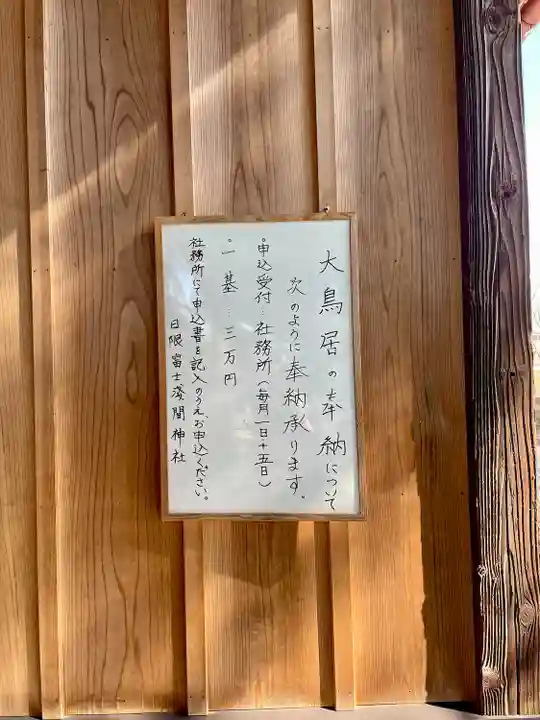 大鳥居の奉納について
次のように奉納承ります。
・申込受付…社務所（毎月一日十五日）
・一基…三万円
社務所にて申込書を記入のうえ、お申込ください。
日限富士浅間神社